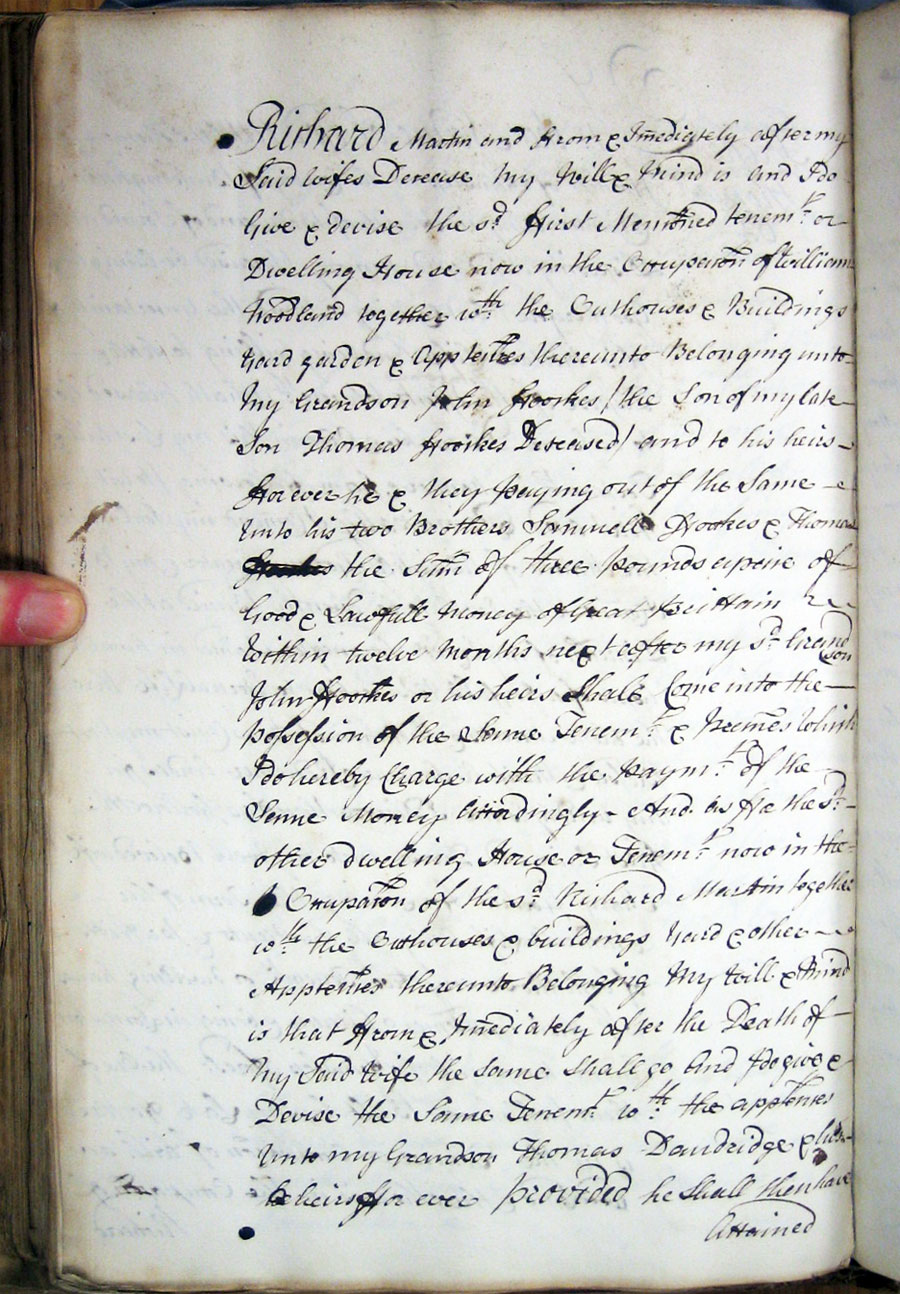 Richard Martin and from & Imediately after my
Said wifes Decease My Will & Mind is and I do
Give & devise the sd. ffirst Mentiōned tenemt. or
Dwelling House now in the Occupac̄on of William
Woodland together wth. the Outhouses & Buildings
Yard garden & Apptēnces thereunto Belonging unto
My Grandson John ffookes / the Son of my late
Son Thomas ffookes Deceased / and to his heirs
ffor ever he & they Paying out of the Same
Unto his two Brothers Samuell ffookes & Thomas
the Sum̄ of three Pounds apeice of
Good & Lawfull Money of Great Brittain
Within twelve Months next after my sd. Grand
son
John ffookes or his heirs Shall Come into the
Possession of the Same Tenemt. & Premes̄ Which
I do hereby Charge with the Paymt. of the
Same Money Accordingly - And as ffor the sd.
other dwelling House or Tenemt. now in the
Occupac̄on of the sd. Richard Martin together
wth. the Outhouses & buildings Yard & other
Apptēnces thereunto Belonging My Will & Mind
is that from & Imediately after the Death of
My Said Wife the Same Shall go And I do give &
Devise the Same Tenemt. wth. the apptēnces
Unto my Grandson Thomas Dandridge & his
heirs ffor ever Provided he Shall then have
Attained